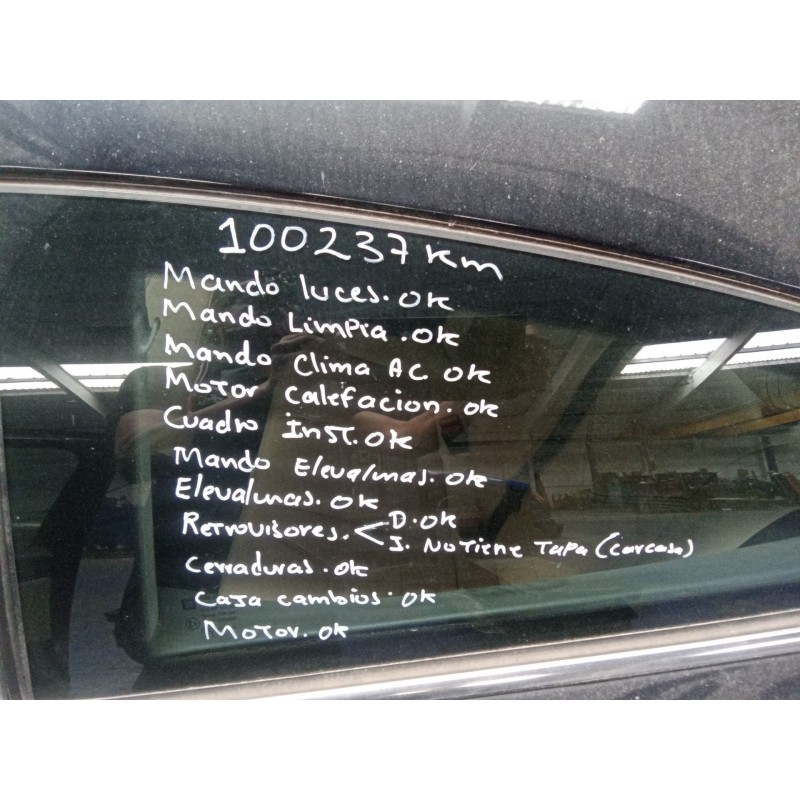 100237 km
Mando luces. OK
Mando Limpia. OK
Mando Clima AC OK
Motor Calefacion. OK
Cuadro Inst. OK
Mando Elevalunas. OK
Elevalunas. OK
Retrovisores. < D. OK
I. No Tiene Tapa (carcasa)
Cerraduras. OK
Caja cambios. OK
Motor. OK